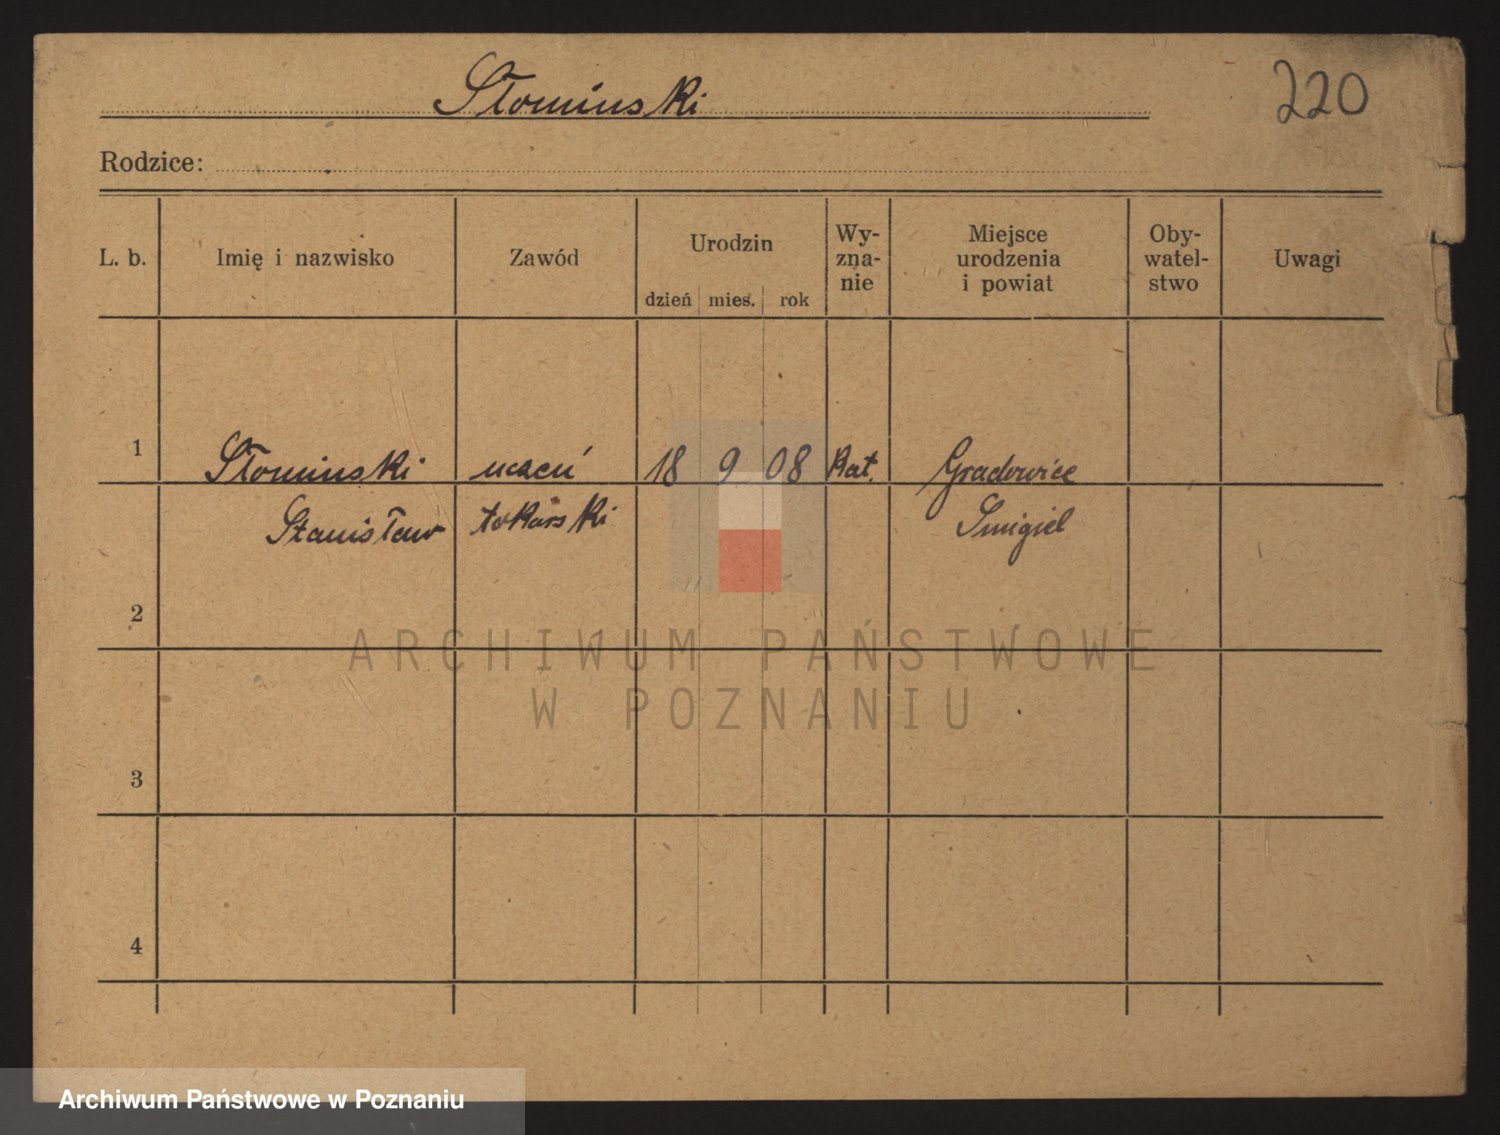 Słomiński
220
Rodzice:
L. b. Imię i nazwisko Zawód Urodzin dzień mies. rok Wy-znanie Miejsce urodzenia i powiat Oby-watel-stwo Uwagi
1 Słominski uczeń 18 9 08 Kat. Gradowice
Stanisław tokarski Śmigiel
2
ARCHIWUM PAŃSTWOWE
W POZNANIU
3
4
Archiwum Państwowe w Poznaniu